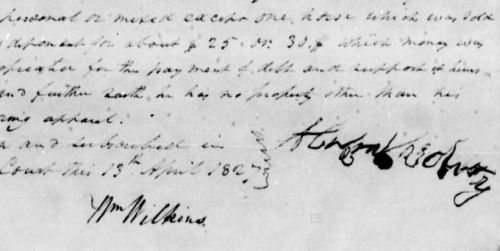 personal or mixed except one horse which was sold
deponent for about $ 25 or 30 $ which money was
for the payment of debt and support of
and further saith he has no property other than his
apparel.
and subscribed in
Court this 13th April 1827
Wm Wilkins